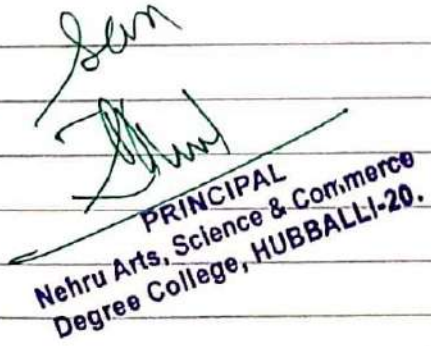 PRINCIPAL
Nehru Arts, Science & Commerce
Degree College, HUBBALLI-20.